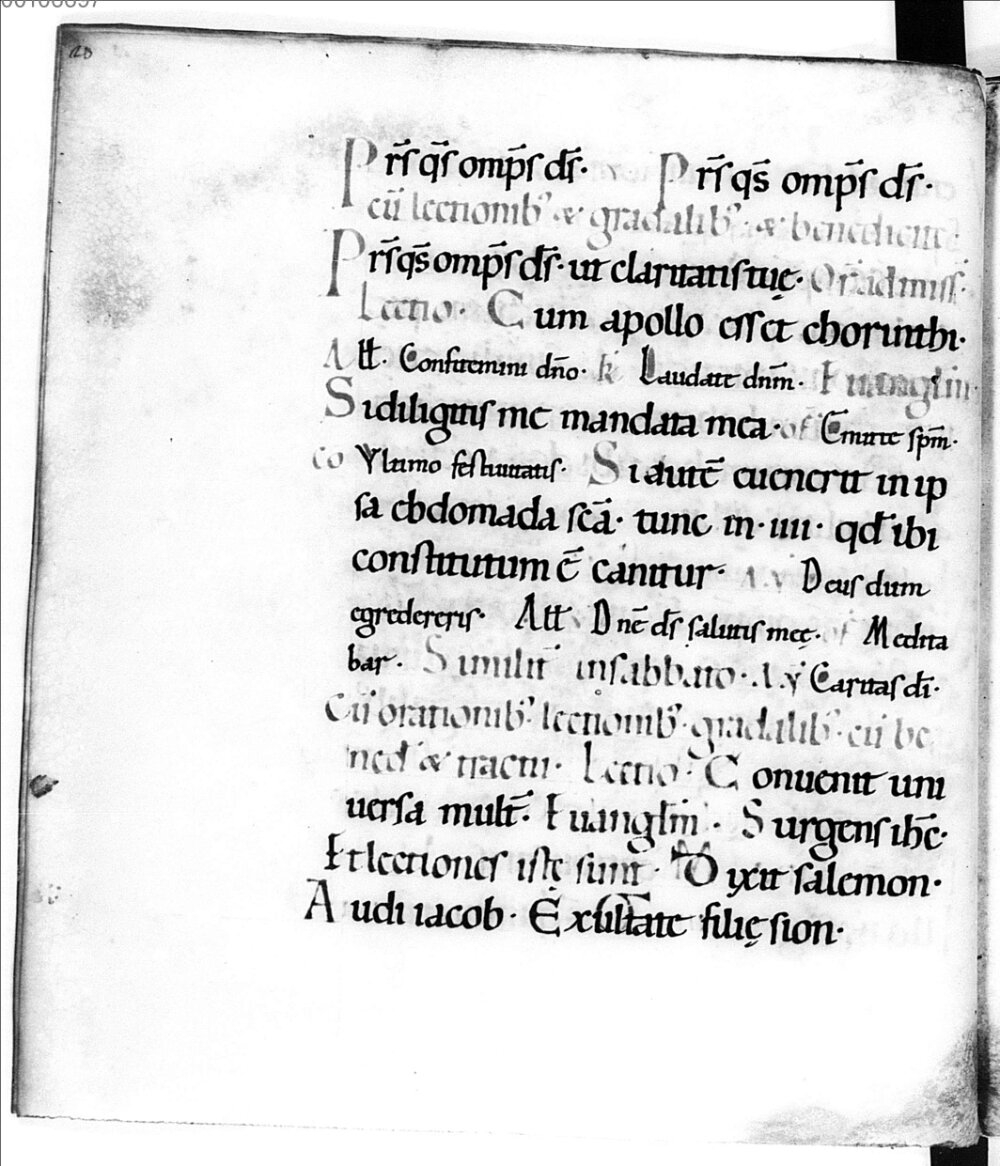 20
Pr̄ſ qs̄ omp̄ſ dſ̄· Pr̄ſ qs̄ omp̄ſ dſ̄·
cū lectionib; & gradalib; & benedictī
Pr̄ſ qs̄ omp̄ſ dſ̄· ut claritatiſ tuę· Or̄ ad miſſ·
Lectio· Cum apollo eſſet chorinthi·
Aƚƚ· Confitemini dn̄o· Laudate dn̄m· Euangliū·
Si diligitiſ me mandata mea· of Emitte ſpm̄·
co Vltimo feſtiuitatiſ· Si autē euenerit in ip
ſa ebdomada ſcā· tunc in· iiii· qd̄ ibi
conſtitutum ē canitur· A.Ꝟ Deuſ dum
egredereriſ· Aƚƚ Dnē dſ̄ ſalutiſ meę· of Medita
bar· Similit̄ in ſabbato· A.Ꝟ Caritaſ dī·
Cū orationib; lectionib; gradalib; cū be
ned̄ & tractu· Lectio· Conuenit uni
uerſa mult̄· Euangliū· Surgenſ ih̄c·
Et lectioneſ iſtę ſunt· Dyxit ſalemon·
Audi iacob· Exultate filię ſion·